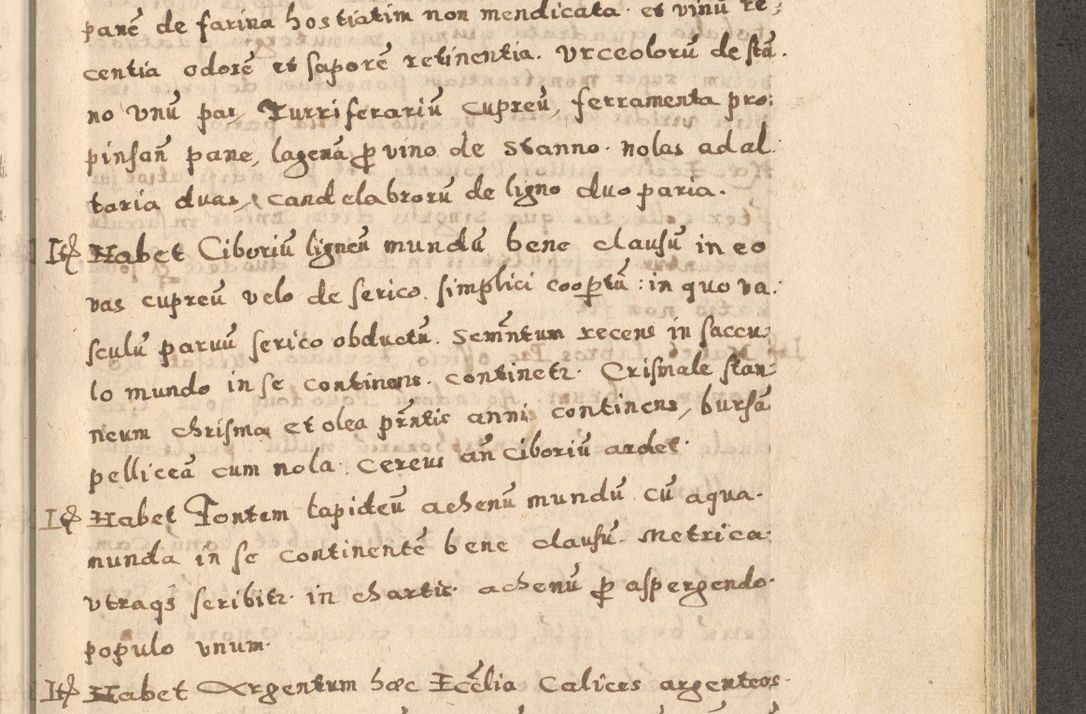 panē de farina hostiatim non mendicata. et vinū re:
centia odorē et saporē retinentia. Urceolorū de sta.
no vnū par, Turriferariū cupreū, ferramenta pro:
pinsan̄ pane, lagenā p̱ vino de stanno. nolas ad al:
taria duas, candelabrorū de ligno duo paria.
Itē Habet Ciboriū ligneū mundū bene clausū in eo
vas cupreū velo de serico simplici coop̱tū: in quo va:
sculū paruū serico obductū. Semn̄tum recens in saccu:
lo mundo in se continens. continetr. Crismale stan:
neum chrisma et olea prn̄tis anni continens, bursā
pelliceā cum nola. Cereus an̄ Ciboriū ardet.
Itē Habet Fontem lapideū achenū mundū cū aqua.
munda in se continentē bene clausū. Metrica
vtraqs scribitr. in chartis. achenū p̱ aspergendo.
populo vnum.
Itē Habet Argentum hæc Eccl̄ia Calices argenteos.